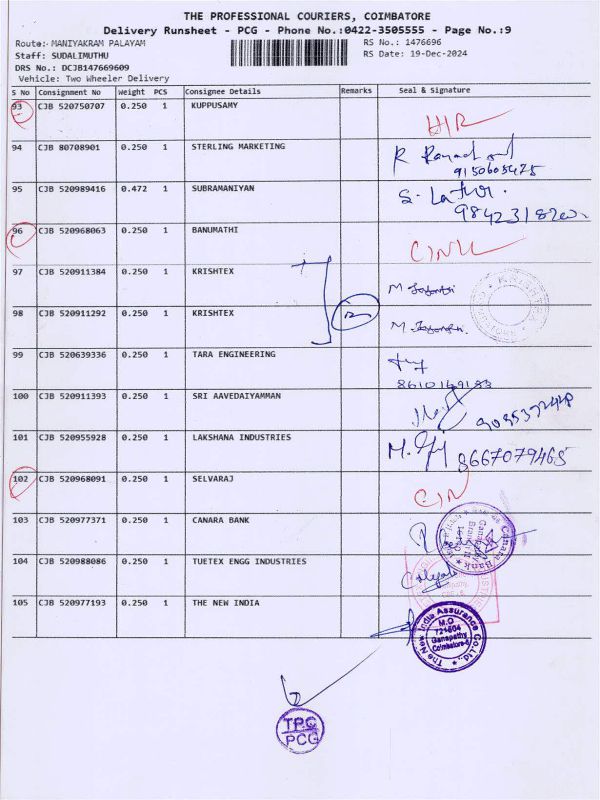 THE PROFESSIONAL COURIERS, COIMBATORE
Delivery Runsheet - PCG - Phone No.:0422-3505555 - Page No.:9
Route: MANIYAKRAM PALAYAM RS No.: 1476696
Staff: SUDALIMUTHU RS Date: 19-Dec-2024
DRS No.: DCJB147669609
Vehicle: Two Wheeler Delivery
S No Consignment No Weight PCS Consignee Details Remarks Seal & Signature
93 CJB 520750707 0.250 1 KUPPUSAMY
94 CJB 80708901 0.250 1 STERLING MARKETING
9150605475
95 CJB 520989416 0.472 1 SUBRAMANIYAN
96 CJB 520968063 0.250 1 BANUMATHI
97 CJB 520911384 0.250 1 KRISHTEX
98 CJB 520911292 0.250 1 KRISHTEX
99 CJB 520639336 0.250 1 TARA ENGINEERING
100 CJB 520911393 0.250 1 SRI AAVEDAIYAMMAN
101 CJB 520955928 0.250 1 LAKSHANA INDUSTRIES
8667079465
102 CJB 520968091 0.250 1 SELVARAJ
103 CJB 520977371 0.250 1 CANARA BANK
Canara Bank
104 CJB 520988086 0.250 1 TUETEX ENGG INDUSTRIES
105 CJB 520977193 0.250 1 THE NEW INDIA
The New India Assurance Co.Ltd.
M.O
721604
Ganapathy
Coimbatore-6
TPC
PCG